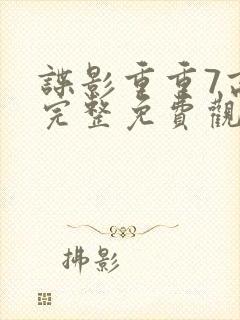 諜影重重7高
完整免費觀
拂影